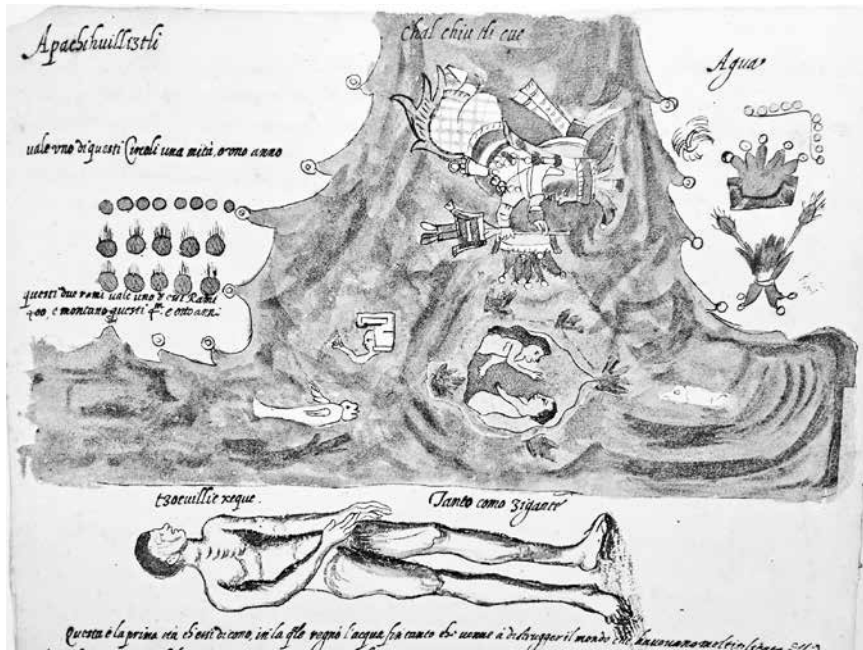 Apachihuiliztli
Chal chiutli cue
Agua
vale vno di questi Circoli una mità, o vno anno
questi due rami vale uno di essi Rami
400, e montano questi
e otto anni
tzocuillicxeque.
Tanto como zigante
Questa è la prima età ch'essi dicono, in la qle regnò l'acqua fin tanto che venne à distrugger il mondo